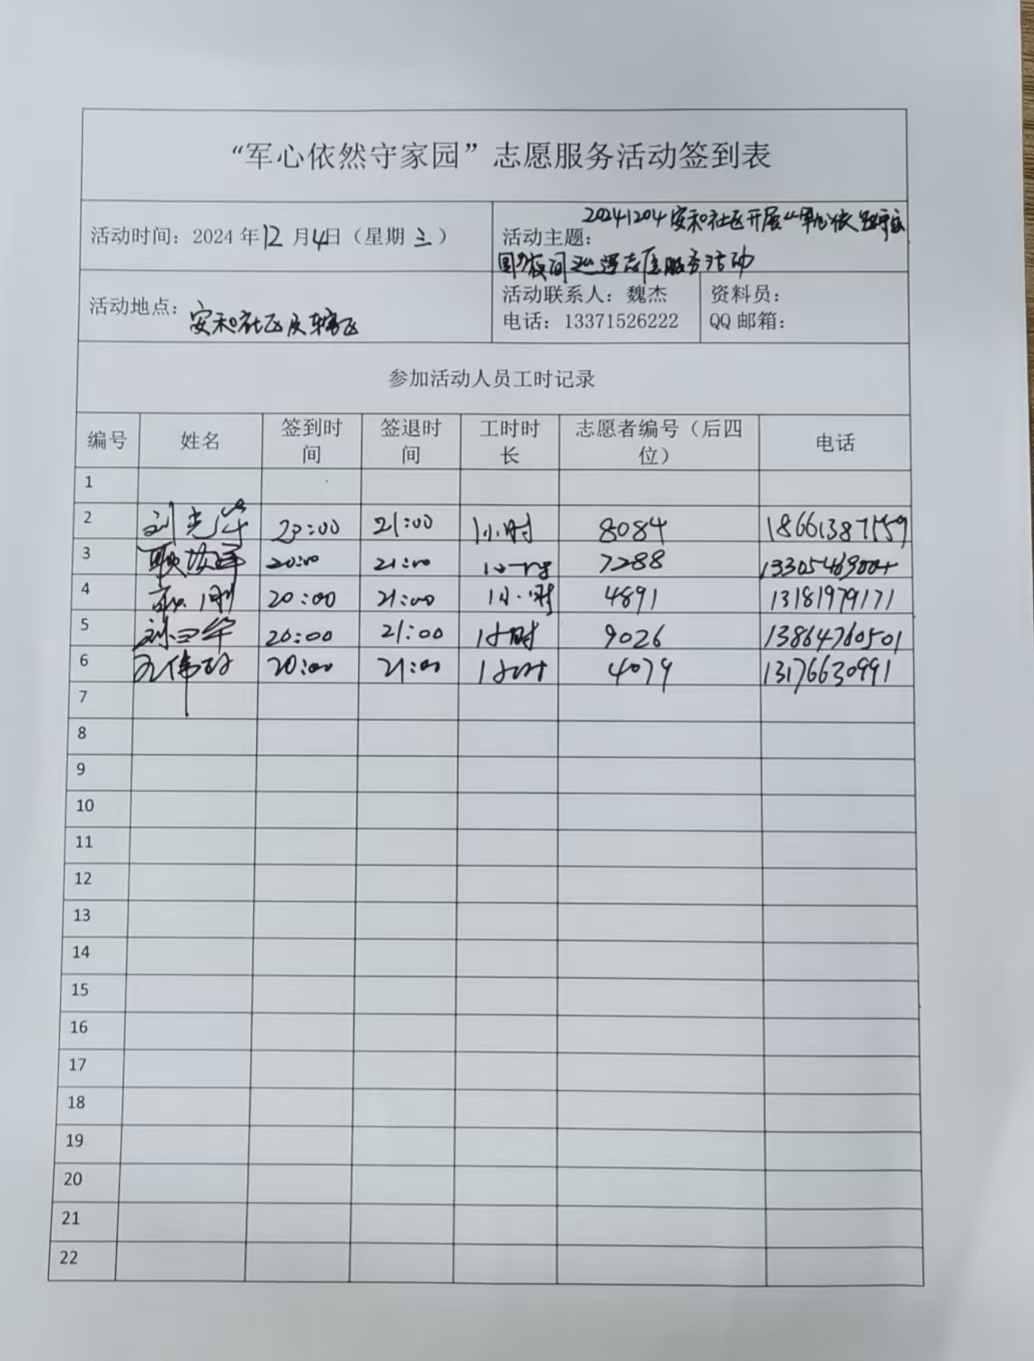 “军心依然守家园”志愿服务活动签到表
活动时间：2024年12月4日（星期三）
活动主题：20241204安和社区开展“军心依然守家
园”夜间巡逻志愿服务活动
活动地点：安和社区及辖区
活动联系人：魏杰
电话：13371526222
资料员：
QQ邮箱：
参加活动人员工时记录
编号 姓名 签到时间 签退时间 工时时长 志愿者编号（后四位） 电话
1
2 刘 21:00 1小时 8084
3 20:00 21:00 7288
4 20:00 21:00 1小时 4891 13181979171
5 20:00 21:00 1小时 9026 13864760501
6 20:00 21:00 1小时 4079 13176630991
7
8
9
10
11
12
13
14
15
16
17
18
19
20
21
22